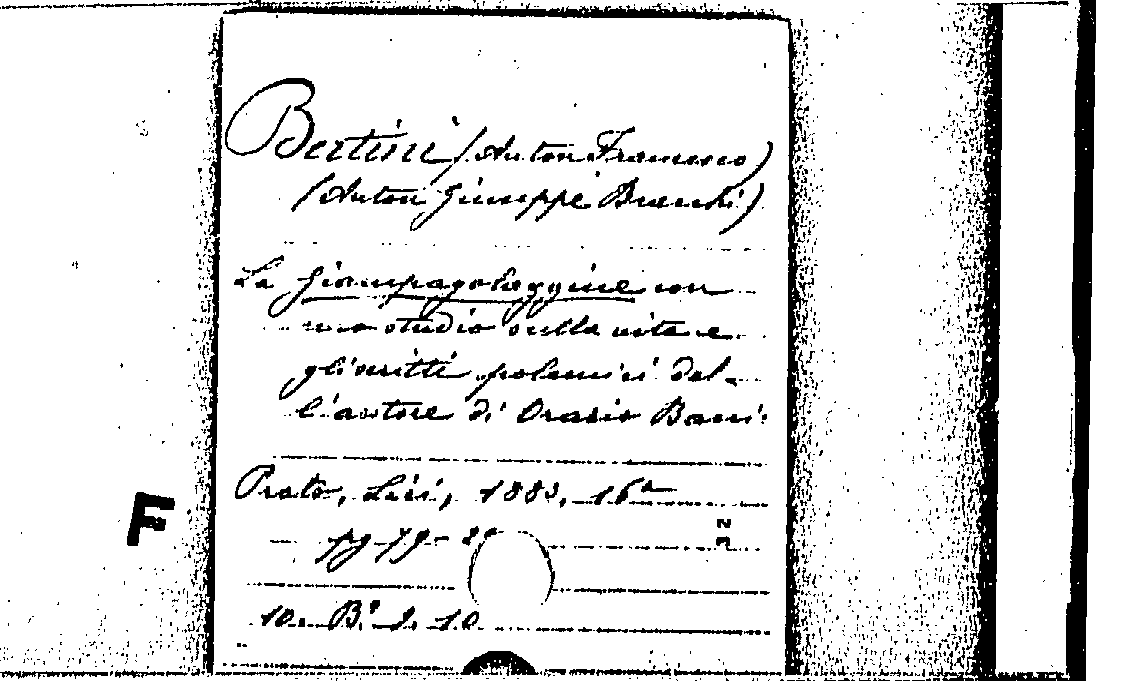 Bertini (Anton Francesco)
(Anton Giuseppe Branchi)
La Giampagolaggine con
uno studio sulla vita e
gli scritti polemici del-
l'autore di Orazio Bacci.
Prato, Lici, 1883, 16º
pg 79-
F
10. B. 2. 10